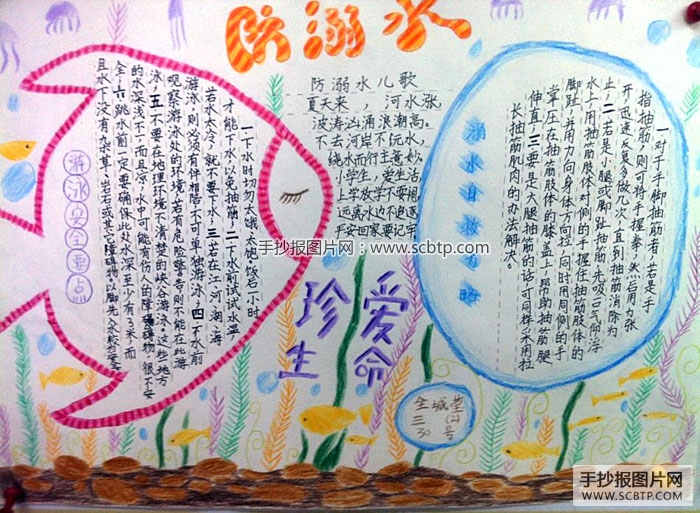 防溺水
防溺水儿歌
夏天来，河水涨，
波涛凶涌浪潮高。
不去河岸不玩水，
绕水而行主意妙。
小学生，爱生活
上学放学不要相
远离水边不追逐
平安回家要记牢
游泳安全要点
一下水时切勿太饿、太饱。饭后一小时
才能下水，以免抽筋；二下水前试试水温，
若水太冷，就不要下水；三若在江、河、湖、海
游泳，则必须有伴相陪，不可单独游泳；四下水前
观察游泳处的环境，若有危险警告，则不能在此游
泳；五不要在地理环境不清楚的峡谷游泳。这些地方
的水深浅不一，而且凉，水中可能有伤人的障碍物，很不安
全；六跳水前一定要确保此处水深至少有3米，而
且水下没有杂草、岩石或其它障碍物。以脚先入水较为安全
水自救方
一对于手脚抽筋者，若是手
指抽筋，则可将手握拳，然后用力张
开，迅速反复多做几次，直到抽筋消除为
止；二若是小腿或脚趾抽筋，先吸一口气仰浮
水上，用抽筋肢体对侧的手握住抽筋肢体的
脚趾，并用力向身体方向拉，同时用同侧的手
掌压在抽筋肢体的膝盖上，帮助抽筋腿
伸直；三要是大腿抽筋的话，可同样采用拉
长抽筋肌肉的办法解决。
珍爱
生命
三(2)
30号
手抄报图片网 - www.scbtp.com
手抄报图片网
WWW.SCBTP.COM